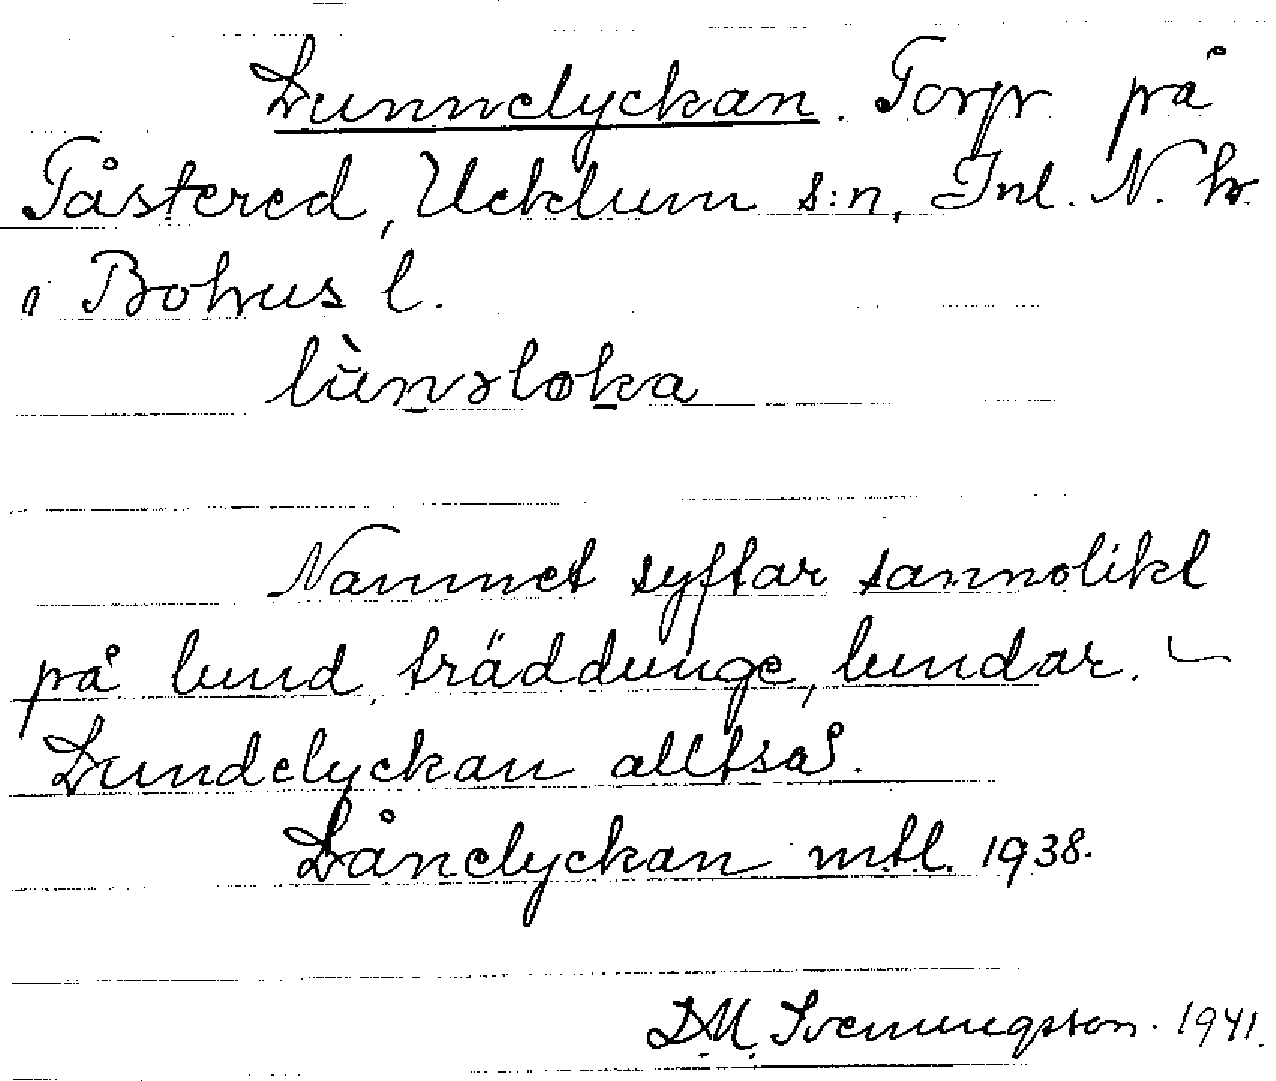 Lunnelyckan. Torp på
Tåstered, Ucklum s:n, Inl. N. hr
i Bohus l.
lùnəløka
Namnet syftar sannolikt
på lund, träddunge, lundar. –
Lundelyckan alltså.
Lånelyckan mtl. 1938.
D.M. Svenungsson. 1941.